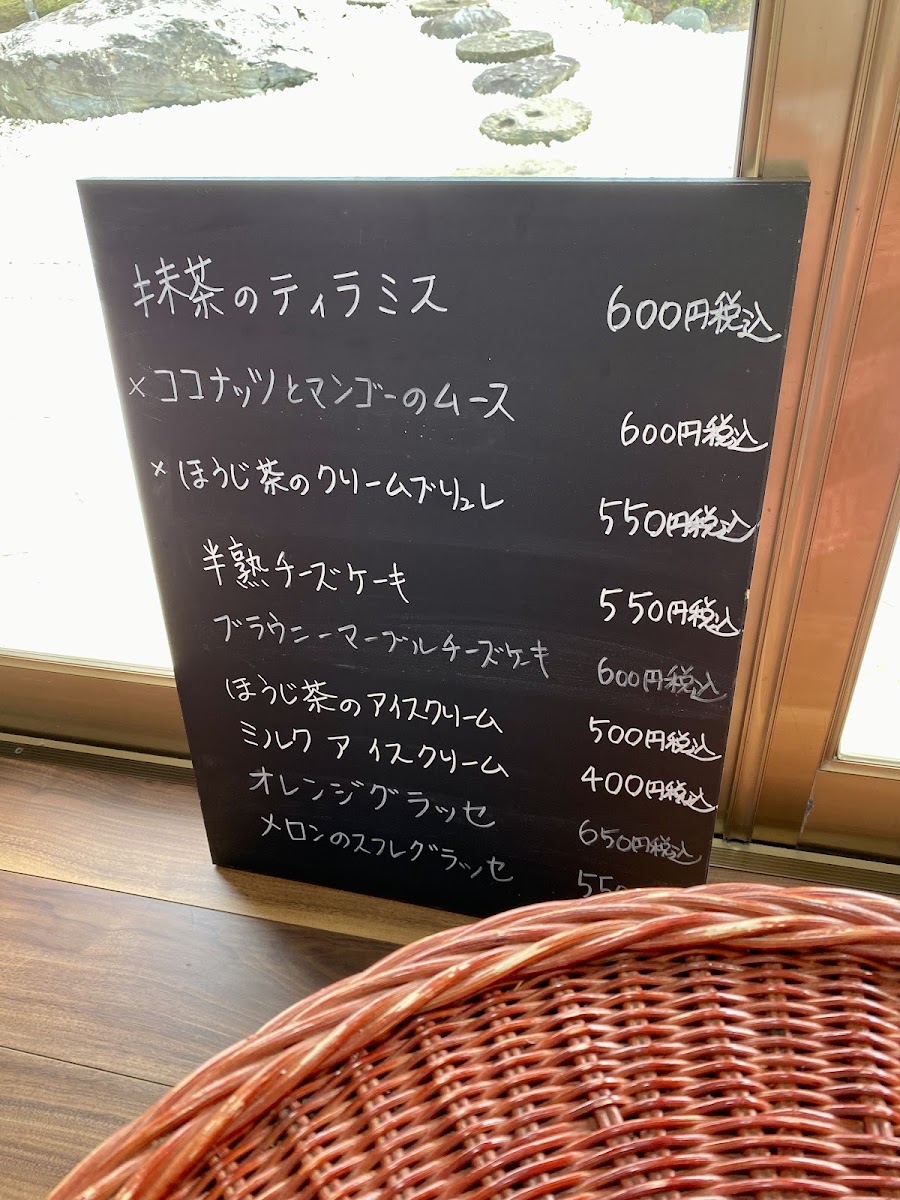 抹茶のティラミス 600円税込
×ココナッツとマンゴーのムース 600円税込
×ほうじ茶のクリームブリュレ 550円税込
半熟チーズケーキ 550円税込
ブラウニーマーブルチーズケーキ 600円税込
ほうじ茶のアイスクリーム 500円税込
ミルクアイスクリーム 400円税込
オレンジグラッセ 650円税込
メロンのスフレグラッセ 550